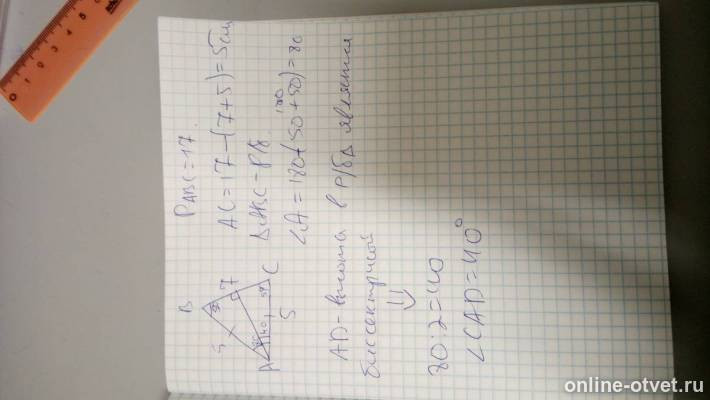 P ABC = 17.
AC = 17 - (7+5) = 5 см
△ABC - р/б
∠A = 180 - (50+50) = 80
100
B
7
5
50
50
40
A
C
5
AD - высота в р/б△ является
биссектрисой
⇓
80:2=40
∠CAD=40°
0 1 2 3 4 5
online-otvet.ru